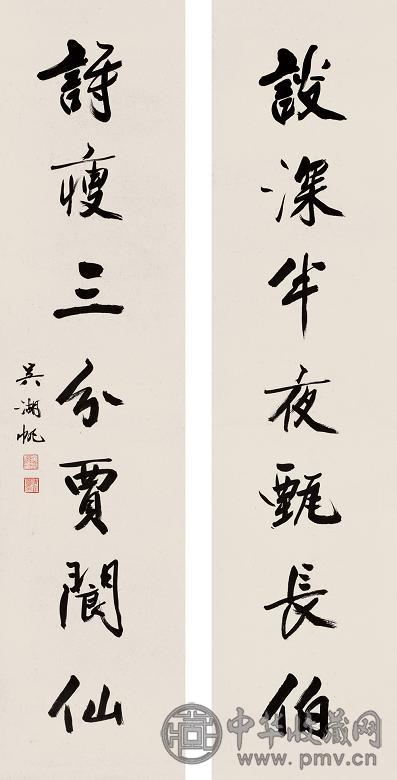 談深半夜甄長伯
詩瘦三分賈閬仙
吳湖帆
中华收藏网
www.pmv.cn